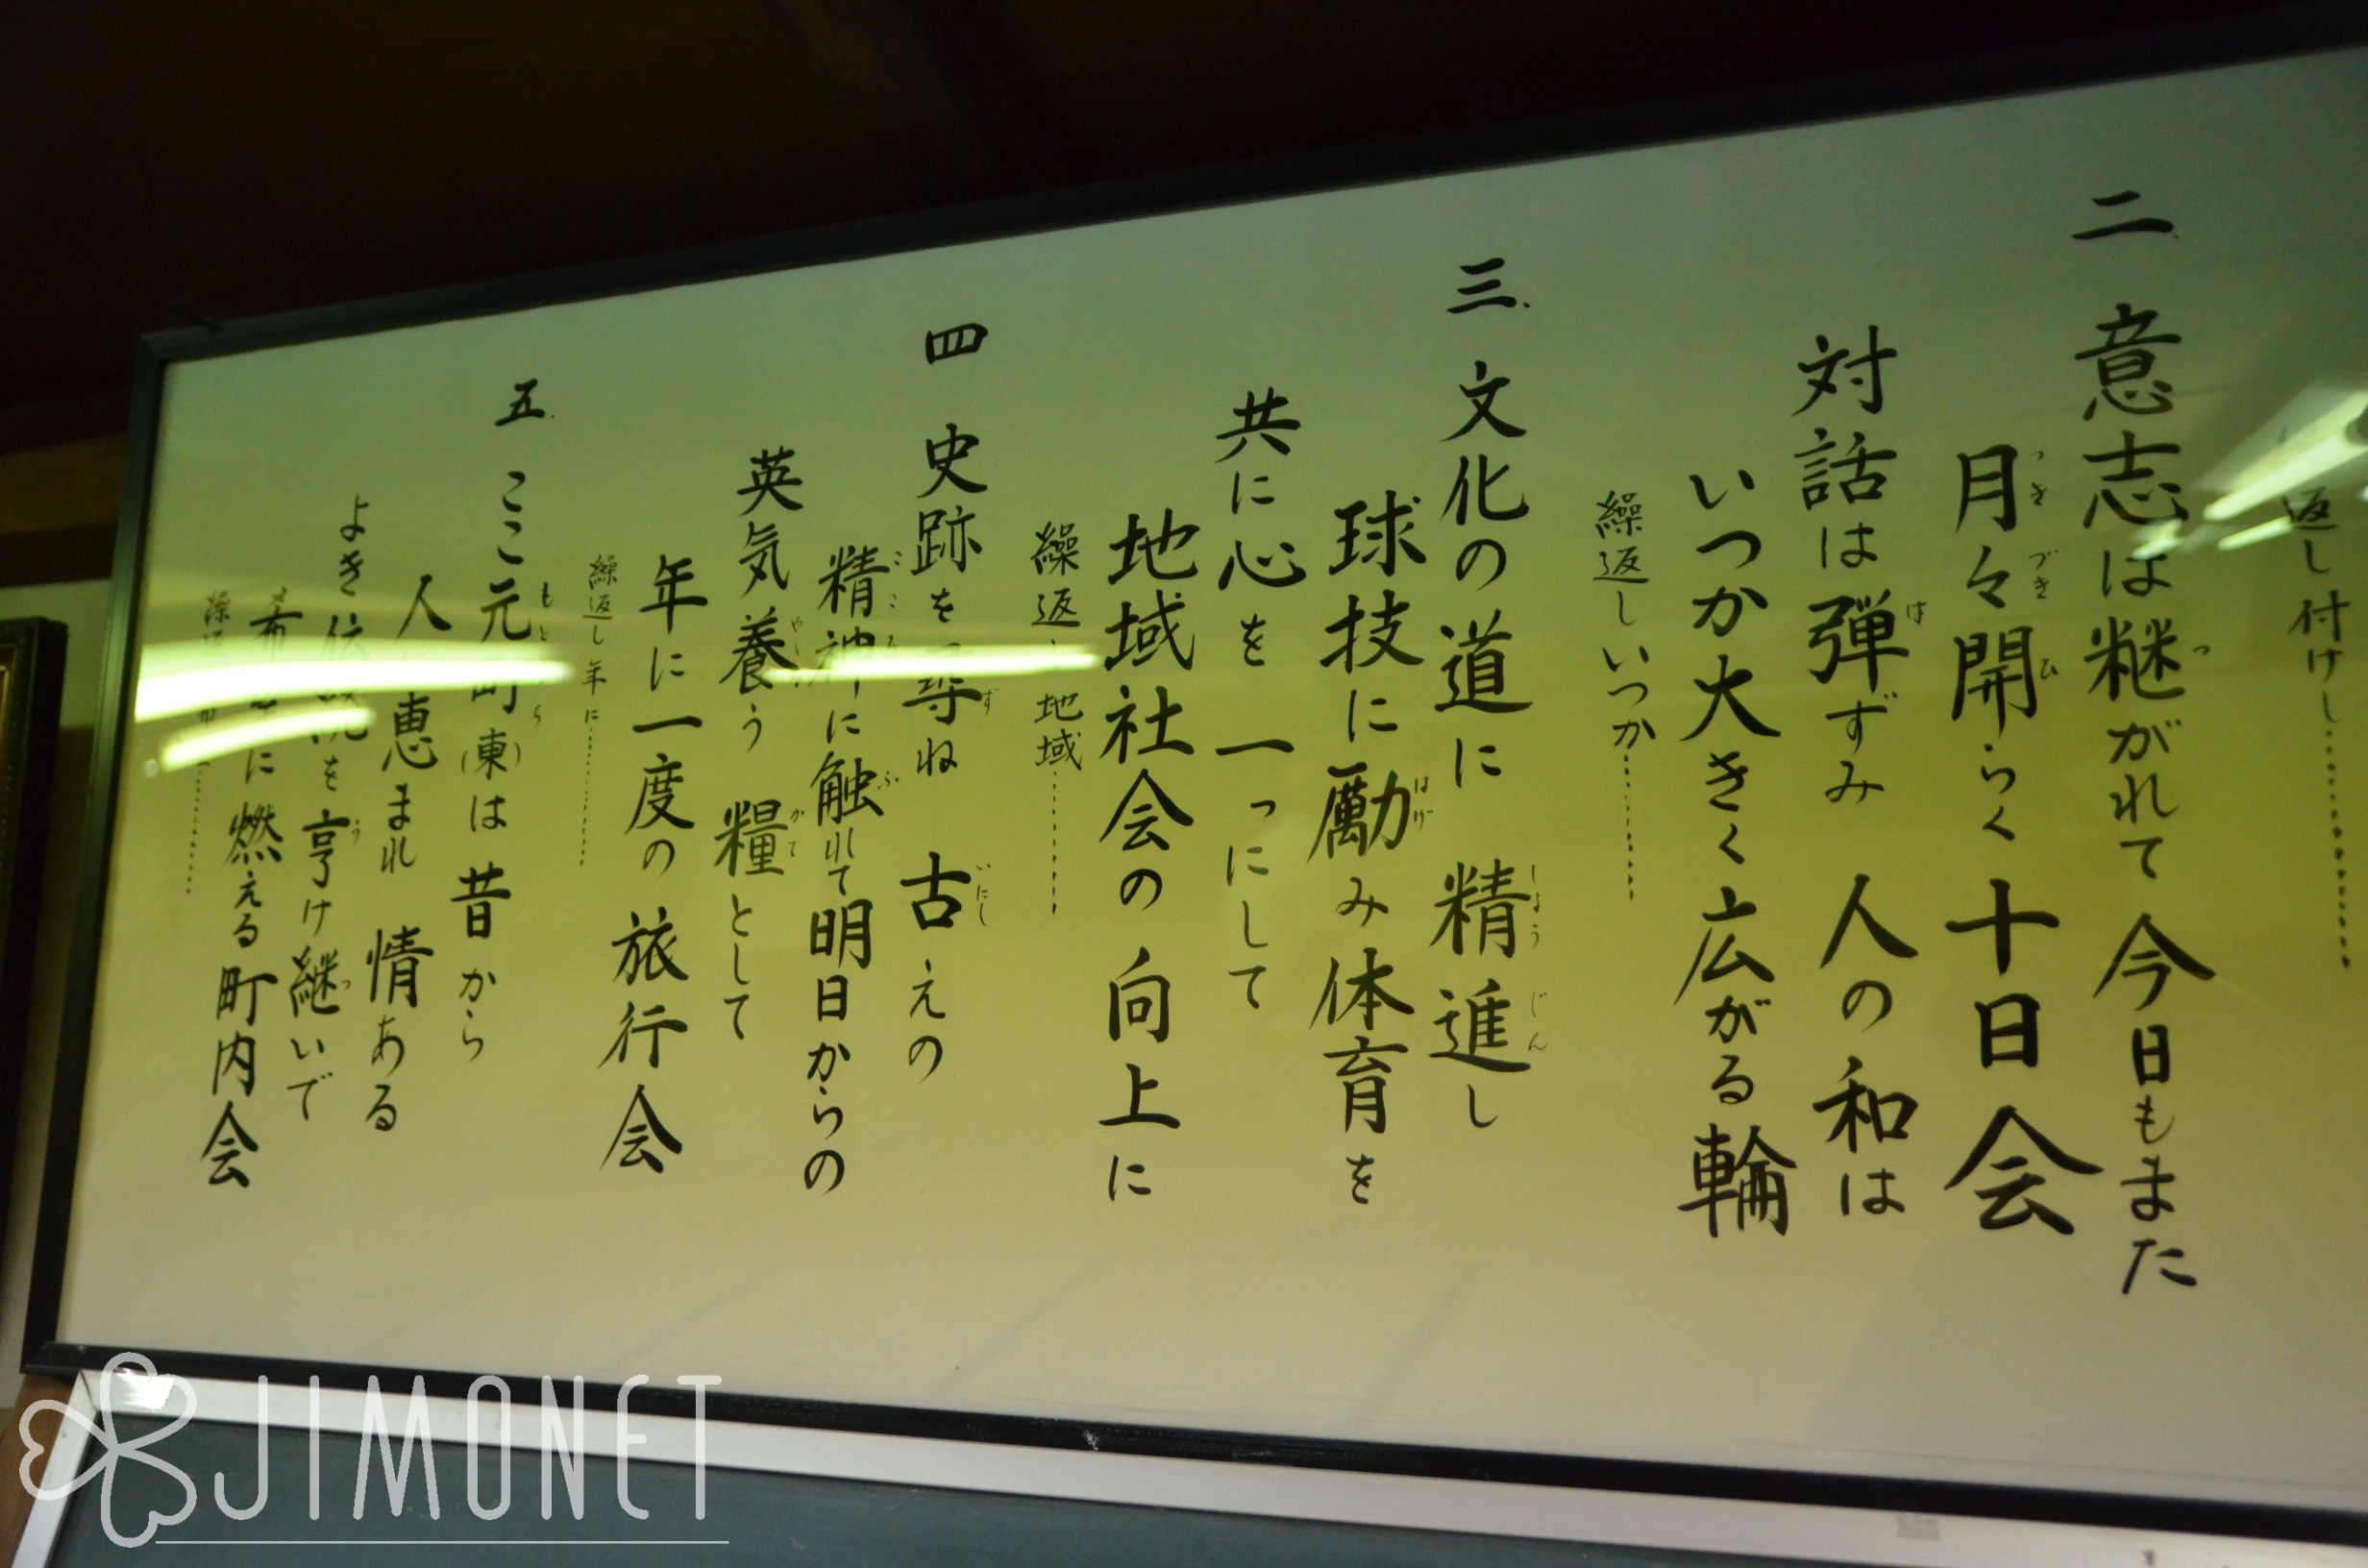 返し付けし…………
二 意志は継がれて今日もまた
月々開らく十日会
対話は弾ずみ 人の和は
いつか大きく広がる輪
繰返しいつか…………
三 文化の道に 精進し
球技に励み体育を
共に心を一つにして
地域社会の向上に
繰返し 地域…………
四 史跡を尋ね 古えの
精神に触れて明日からの
英気養う 糧として
年に一度の旅行会
繰返し年に…………
五 ここ元町(東)は昔から
人 恵まれ 情ある
よき伝統を享け継いで
希 に燃える町内会
JIMONET